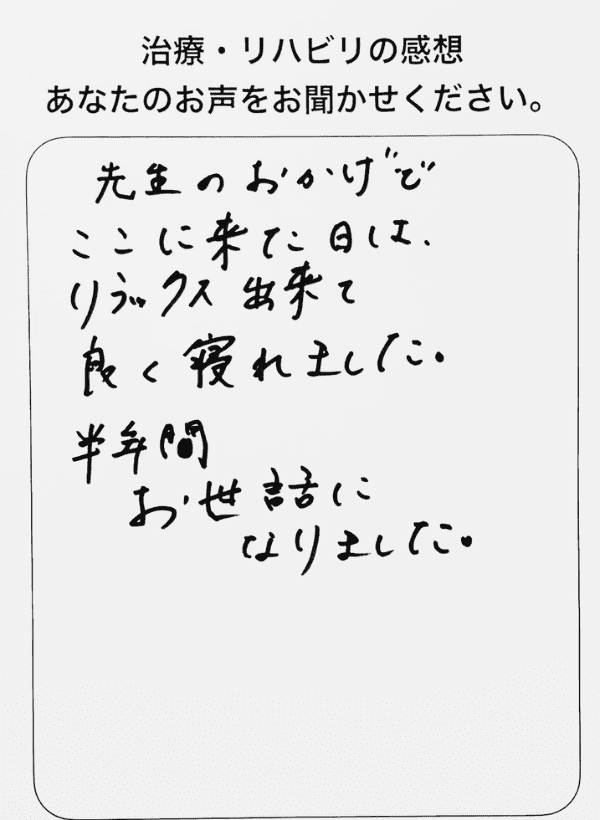 治療・リハビリの感想
あなたのお声をお聞かせください。
先生のおかげで
ここに来た日は、
リラックス出来て
良く寝れました。
半年間
お世話に
なりました。